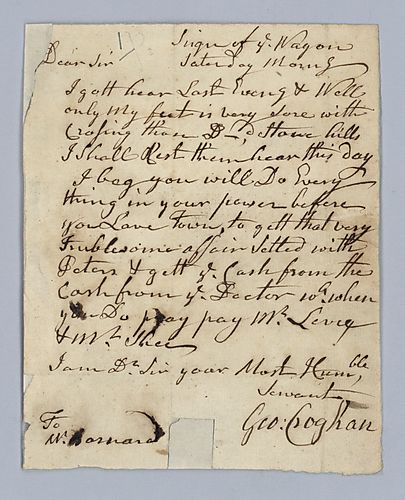 Sign of ye. Wagon
Dear Sir Saterday Morng
I gott hear Last Eveng & Well
only My feet is very Sore with
Crosing them D—d Stone hills
I Shall Rest them hear this day
I beg you will Do Every
thing in your power before
you Lave town, to gett that very
Trublesome affair Setled with
Peters & gett ye. Cash from the
Cash from ye. Doctor wh. when
you Do pray pay Mr. Levy
& Mr. Shee
I am Dr. Sir your Most Humble
Servant
Geo: Croghan
To
Mr. Barnard